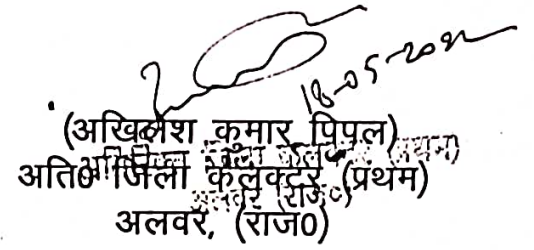 18-05-2022
(अखिलेश कुमार पिपल)
अति0 जिला कलक्टर (प्रथम)
अलवर, (राज0)